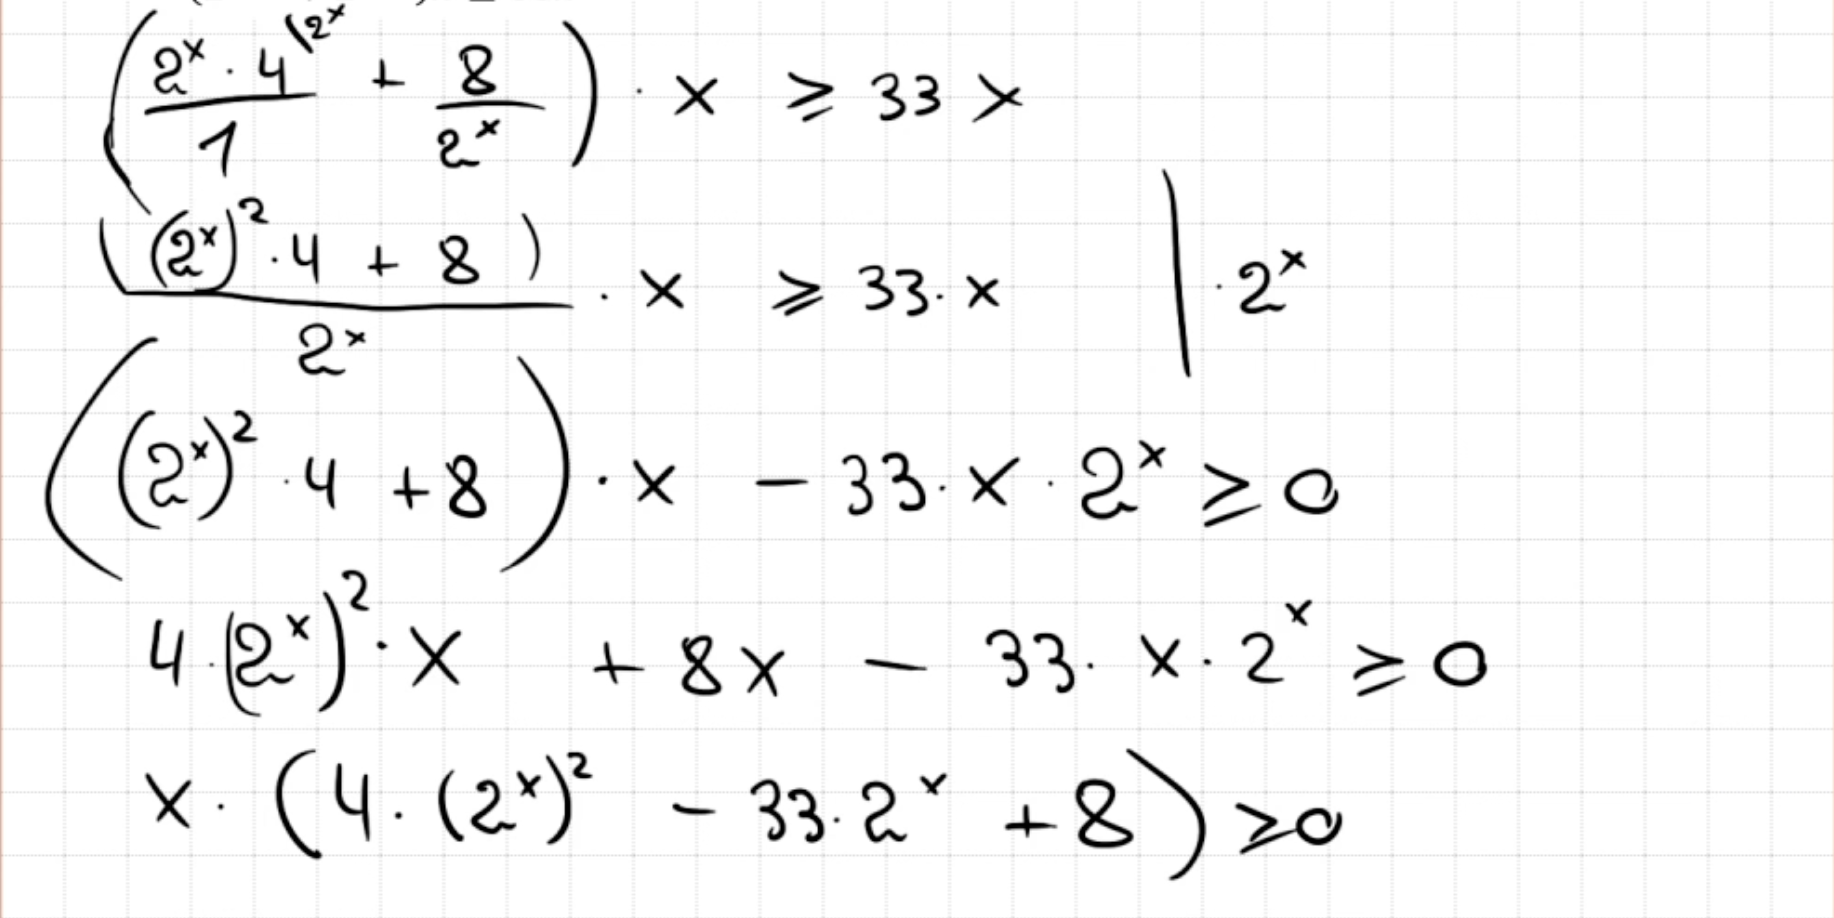 ( 2^x · 4^(2^x / 1 + 8 / 2^x ) · x ≥ 33 x
( (2^x)^2 · 4 + 8 ) / 2^x · x ≥ 33 · x | · 2^x
( (2^x)^2 · 4 + 8 ) · x - 33 · x · 2^x ≥ 0
4 · (2^x)^2 · x + 8x - 33 · x · 2^x ≥ 0
x · ( 4 · (2^x)^2 - 33 · 2^x + 8 ) ≥ 0